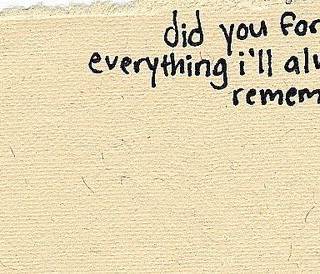 did you for
everything i'll alw
remem